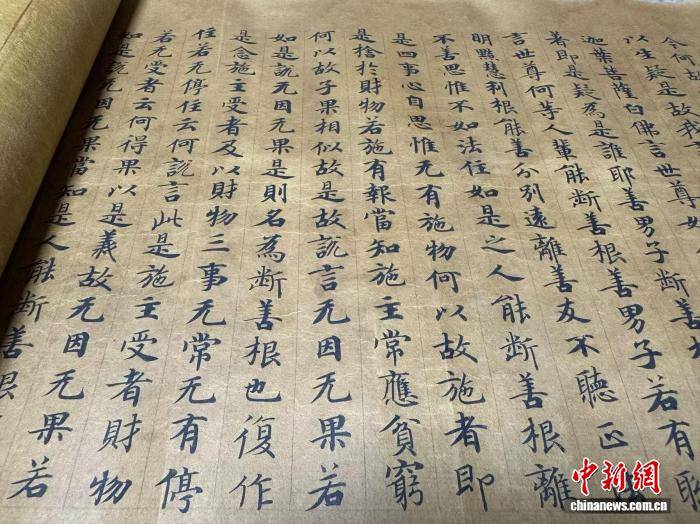 以生疑是故我
迦葉菩薩白佛言世尊如
著即是疑為是誰耶善男子
言世尊何等人輩能斷善根善男子若有
明黠慧利根能善分別遠離善友不聽正
不善思惟不如法住如是之人能斷善根離
是四事心自思惟无有施物何以故施者即
是捨於財物若施有報當知施主常應貧窮
何以故子果相似故是故說言无因无果若
如是說无因无果是則名為斷善根也復作
是念施主受者及以財物三事无常无有停
住若无停住云何說言此是施主受者財物
若无受者云何得果以是義故无因无果若
如是說无因无果當知是人能斷善根
中新网
chinanews.com